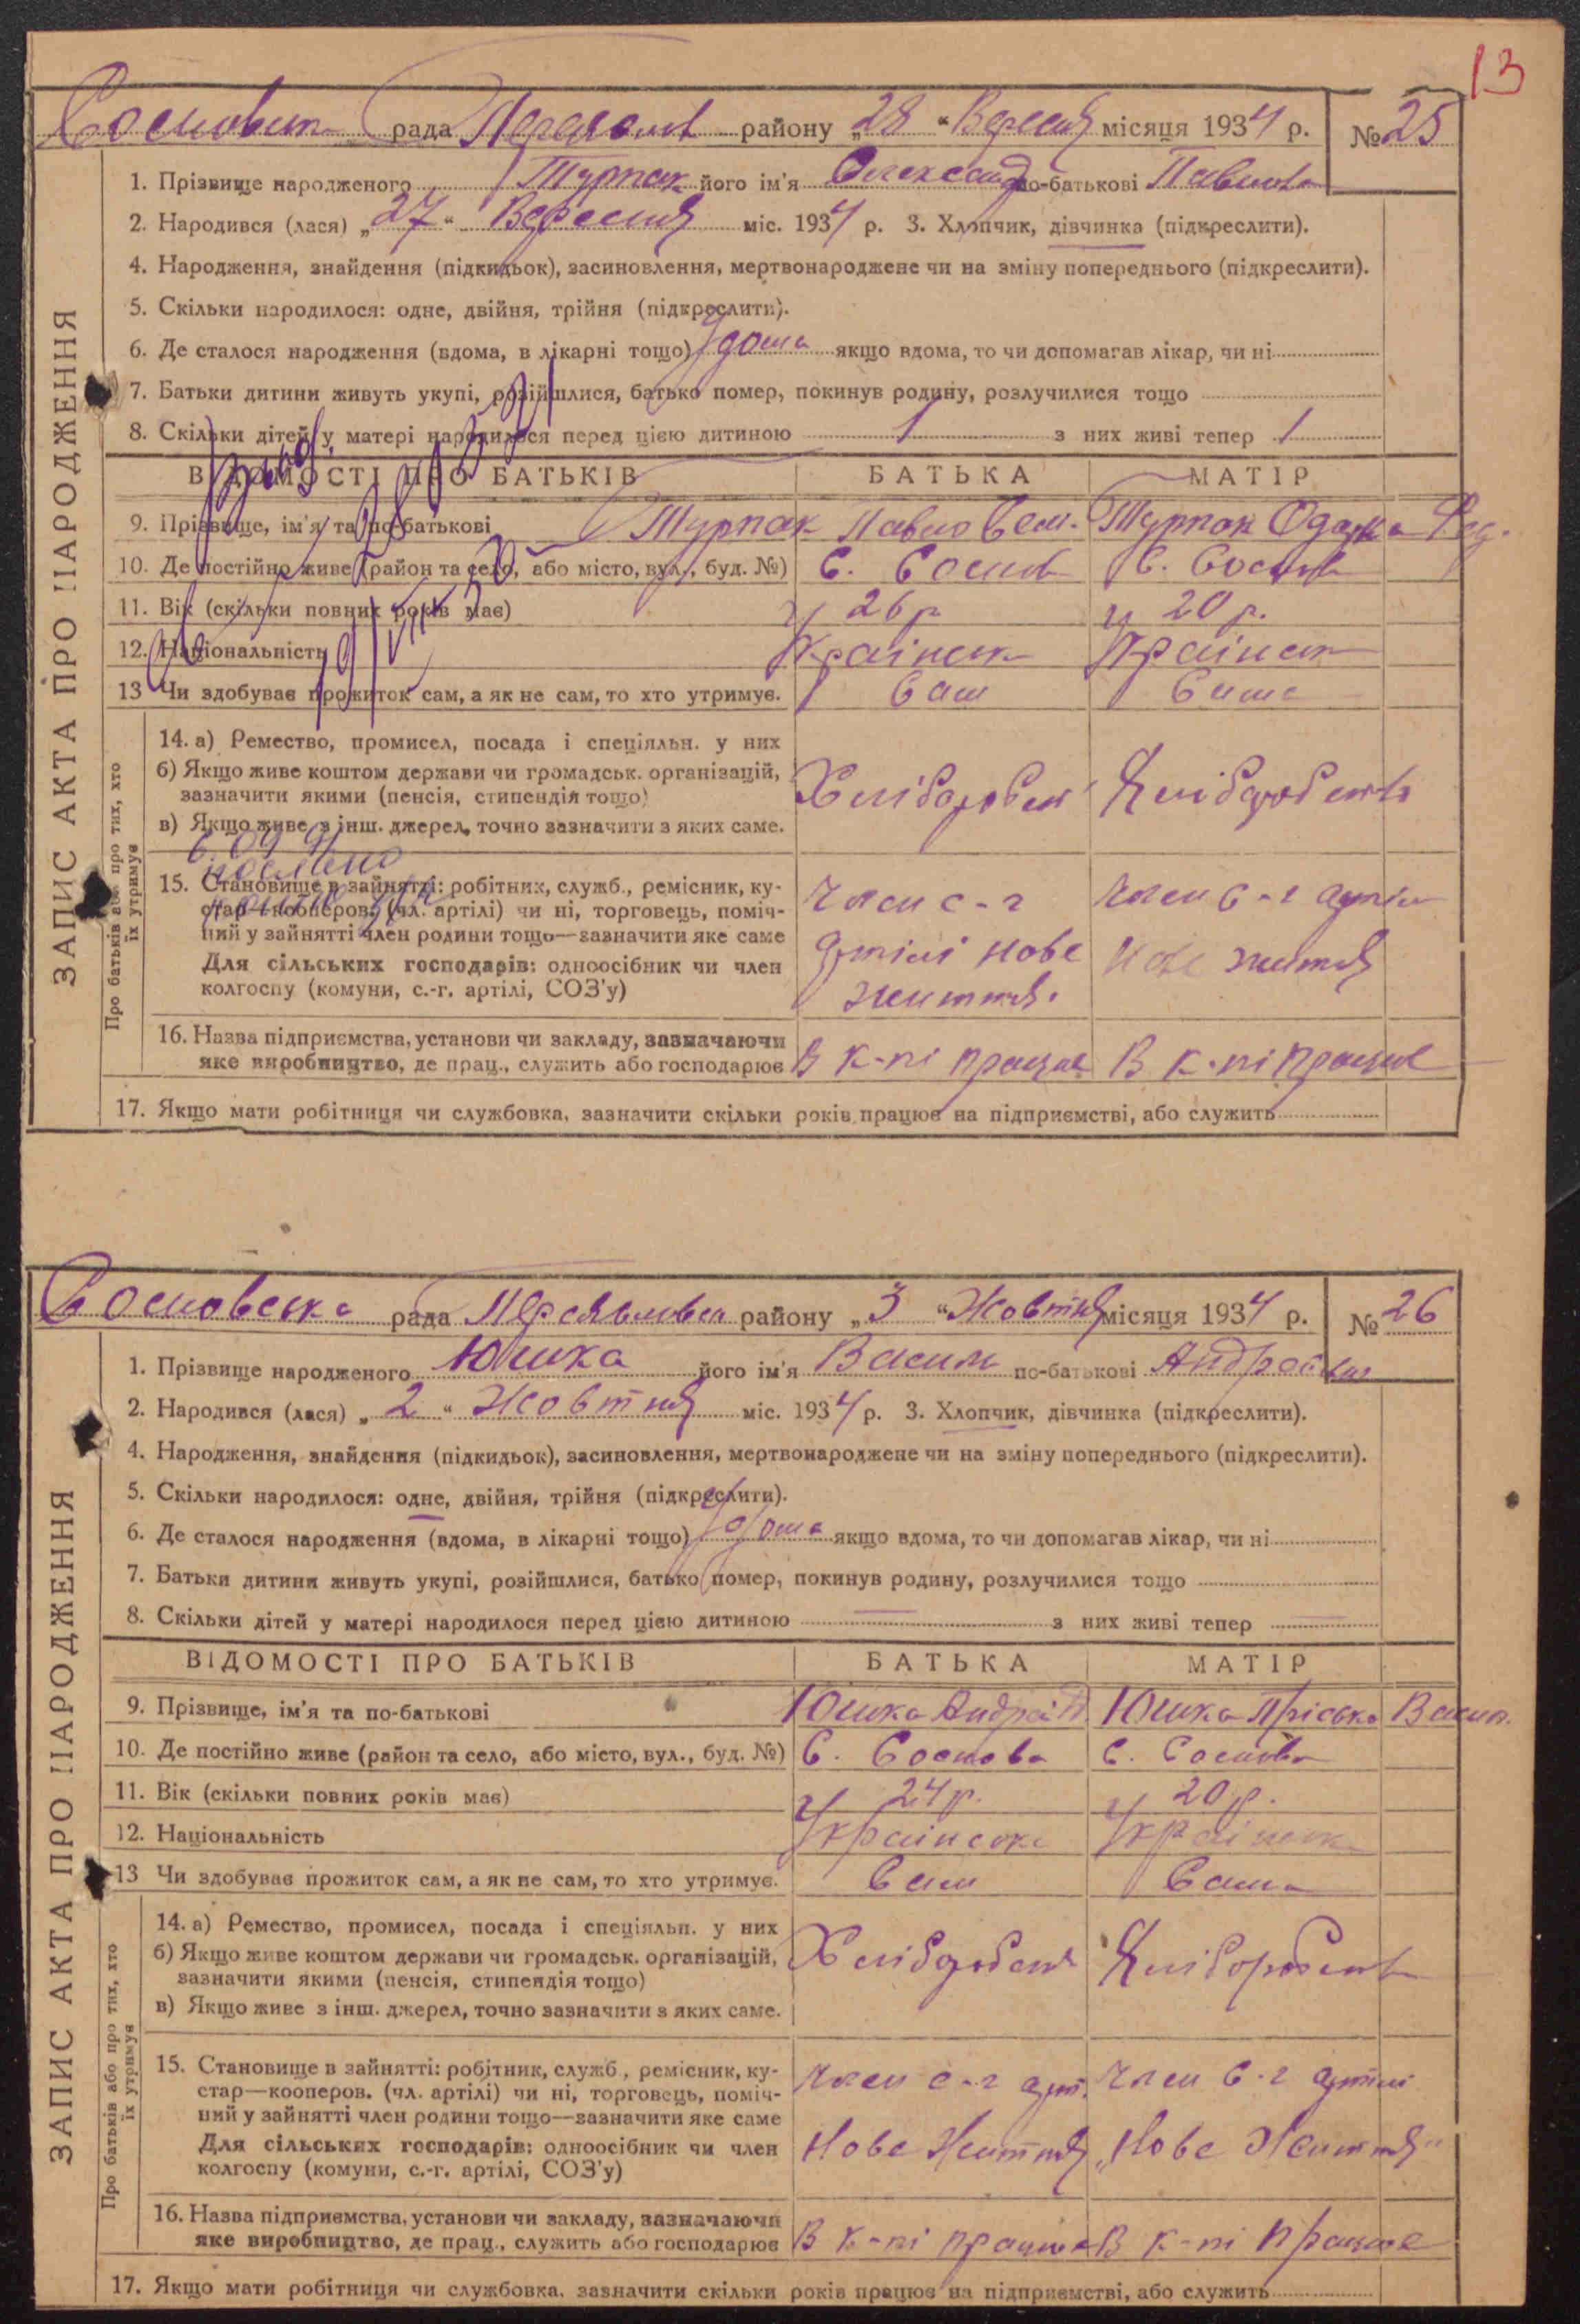 13
рада района „28“ Вересня місяця 1934 р. № 25
1. Прізвище народженого Турпак його ім'я по-батькові
2. Народився (лася) „27“ Вересня міс. 1934 р. 3. Хлопчик, дівчинка (підкреслити).
4. Народження, знайдення (підкидьок), засиновлення, мертвонароджене чи на зміну попереднього (підкреслити).
5. Скільки народилося: одне, двійня, трійня (підкреслити).
6. Де сталося народження (вдома, в лікарні тощо) Удома якщо вдома, то чи допомагав лікар, чи ні
7. Батьки дитини живуть укупі, розійшлися, батько помер, покинув родину, розлучилися тощо
8. Скільки дітей у матері народилося перед цією дитиною 1 з них живі тепер 1
ВІДОМОСТІ ПРО БАТЬКІВ БАТЬКА МАТІР
9. Прізвище, ім'я та по-батькові Турпак Павло Сем. Турпак Одарка Фед.
10. Де постійно живе (район та село, або місто, вул., буд. №) С. С.
11. Вік (скільки повних років має) 26 р 20 р.
12. Національність
13 Чи здобуває прожиток сам, а як не сам, то хто утримує. Сам Сама
14. а) Ремество, промисел, посада і спеціяльн. у них
б) Якщо живе коштом держави чи громадськ. організацій,
зазначити якими (пенсія, стипендія тощо)
в) Якщо живе з інш. джерел, точно зазначити з яких саме.
15. Становище в зайнятті: робітник, служб., ремісник, ку-
стар—кооперов. (чл. артілі) чи ні, торговець, поміч- Член с-г Член с-г артілі
ний у зайнятті член родини тощо—зазначити яке саме
Для сільських господарів: одноосібник чи член артілі нове Нове життя
колгоспу (комуни, с.-г. артілі, СОЗ'у) життя.
16. Назва підприємства, установи чи закладу, зазначаючи
яке виробництво, де прац., служить або господарює В к-пі працює В к-пі працює
17. Якщо мати робітниця чи службовка, зазначити скільки років працює на підприємстві, або служить
ЗАПИС АКТА ПРО НАРОДЖЕННЯ
Про батьків або про тих, хто
їх утримує
Сосновська рада району „3“ Жовтня місяця 1934 р. № 26
1. Прізвище народженого Юшка його ім'я Василь по-батькові
2. Народився (лася) „2“ Жовтня міс. 1934 р. 3. Хлопчик, дівчинка (підкреслити).
4. Народження, знайдення (підкидьок), засиновлення, мертвонароджене чи на зміну попереднього (підкреслити).
5. Скільки народилося: одне, двійня, трійня (підкреслити).
6. Де сталося народження (вдома, в лікарні тощо) Удома якщо вдома, то чи допомагав лікар, чи ні
7. Батьки дитини живуть укупі, розійшлися, батько помер, покинув родину, розлучилися тощо
8. Скільки дітей у матері народилося перед цією дитиною — з них живі тепер —
ВІДОМОСТІ ПРО БАТЬКІВ БАТЬКА МАТІР
9. Прізвище, ім'я та по-батькові Юшка Андрій Юшка Пріська Васил.
10. Де постійно живе (район та село, або місто, вул., буд. №) С. Соснова С. Соснова
11. Вік (скільки повних років має) 24 р. 20 р.
12. Національність
13 Чи здобуває прожиток сам, а як не сам, то хто утримує. Сам Сама
14. а) Ремество, промисел, посада і спеціяльн. у них
б) Якщо живе коштом держави чи громадськ. організацій,
зазначити якими (пенсія, стипендія тощо)
в) Якщо живе з інш. джерел, точно зазначити з яких саме.
15. Становище в зайнятті: робітник, служб., ремісник, ку-
стар—кооперов. (чл. артілі) чи ні, торговець, поміч- Член с-г арт. Член с-г артілі
ний у зайнятті член родини тощо—зазначити яке саме
Для сільських господарів: одноосібник чи член Нове Життя „Нове Життя“
колгоспу (комуни, с.-г. артілі, СОЗ'у)
16. Назва підприємства, установи чи закладу, зазначаючи
яке виробництво, де прац., служить або господарює В к-пі працює В к-пі працює
17. Якщо мати робітниця чи службовка, зазначити скільки років працює на підприємстві, або служить
ЗАПИС АКТА ПРО НАРОДЖЕННЯ
Про батьків або про тих, хто
їх утримує